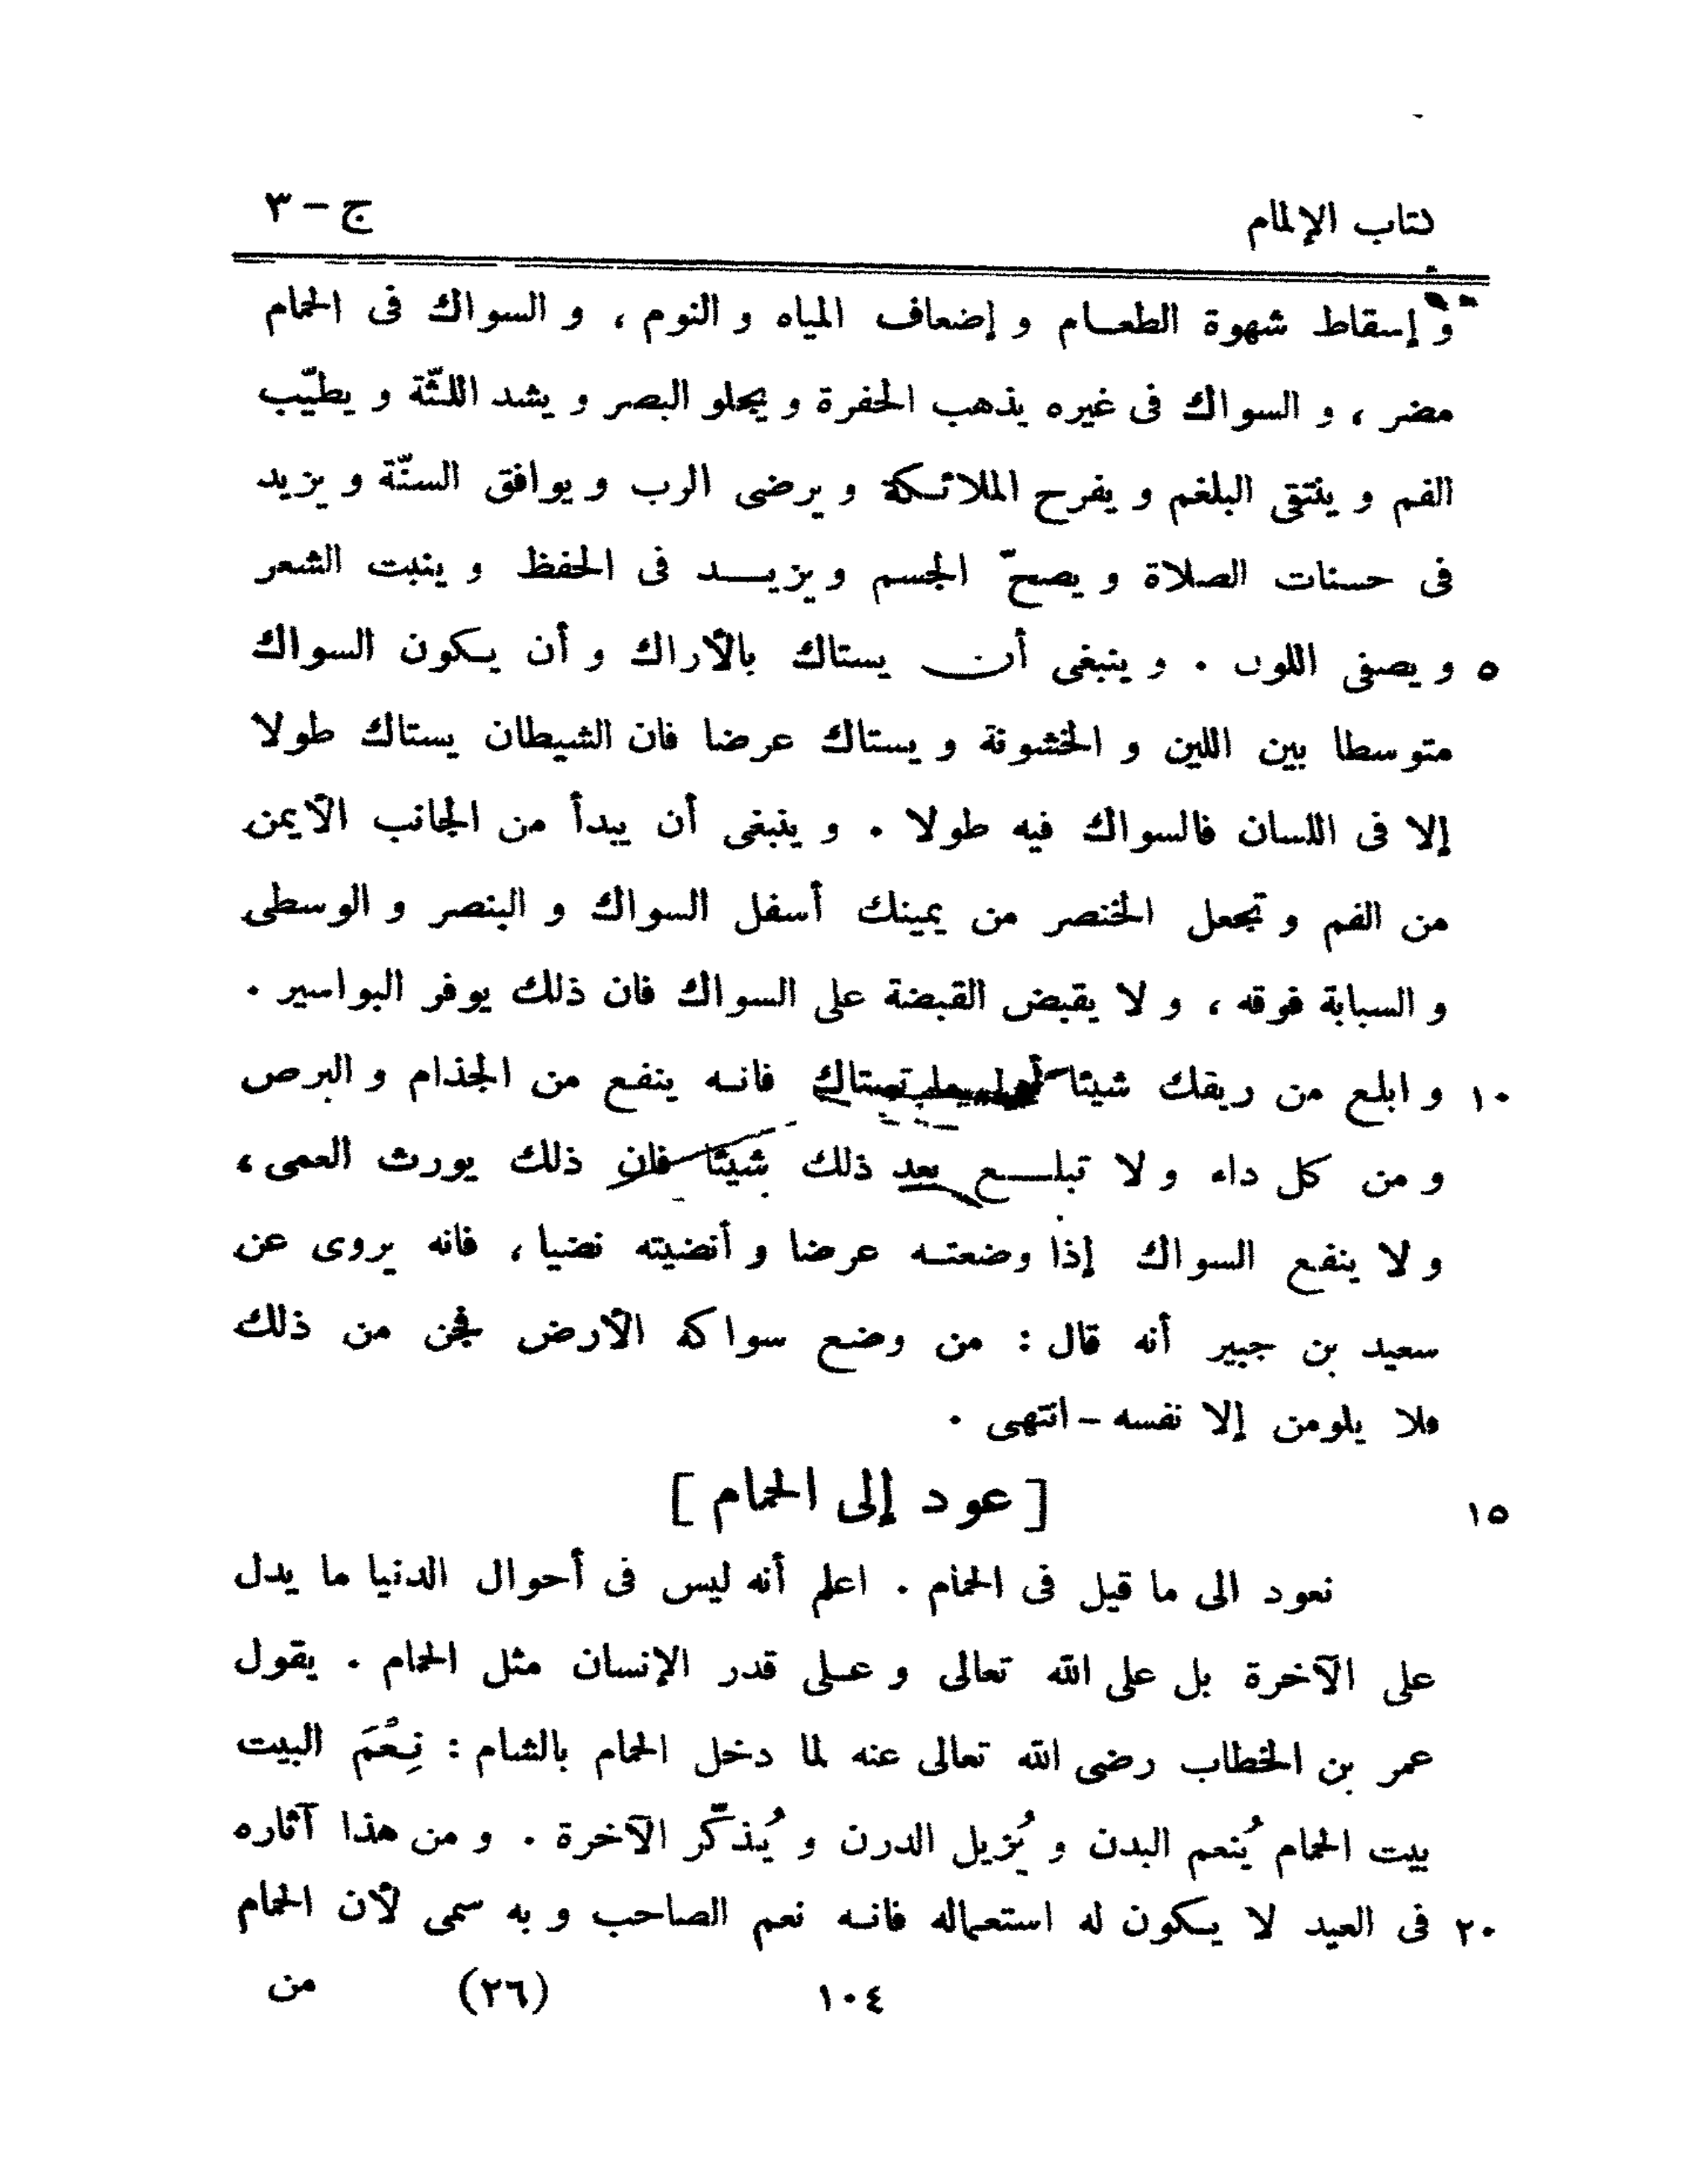 كتاب الإلمام ج – ٣
و إسقاط شهوة الطعـــام و إضعاف المياه و النوم ، و السواك فى الحمام
مضر ، و السواك فى غيره يذهب الحفرة و يجلو البصر و يشد اللثّة و يطيّب
الفم و ينتقى البلغم و يفرح الملائكة و يرضى الرب و يوافق السنّة و يزيد
فى حسنات الصلاة و يصحّ الجسم و يزيــــد فى الحفظ و ينبت الشعر
٥ و يصفى اللون . و ينبغى أن يستاك بالأراك و أن يكون السواك
متوسطا بين اللين و الخشونة و يستاك عرضا فان الشيطان يستاك طولا
إلا فى اللسان فالسواك فيه طولا . و ينبغى أن يبدأ من الجانب الأيمن
من الفم و تجعل الخنصر من يمينك أسفل السواك و البنصر و الوسطى
و السبابة فوقه ، و لا يقبض القبضة على السواك فان ذلك يوفر البواسير .
١٠ و ابلع من ريقك شيئا تستاك فانــه ينفع من الجذام و البرص
و من كل داء و لا تبلـــع بعد ذلك شيئا فان ذلك يورث العمى ،
و لا ينفع السواك إذا وضعتــه عرضا و أنضيته نضيا ، فانه يروى عن
سعيد بن جبير أنه قال : من وضع سواكه الأرض فجن من ذلك
فلا يلومن إلا نفسه – انتهى .
١٥ [ عود إلى الحمام ]
نعود الى ما قيل فى الحمام . اعلم أنه ليس فى أحوال الدنيا ما يدل
على الآخرة بل على الله تعالى و عــلى قدر الإنسان مثل الحمام . يقول
عمر بن الخطاب رضى الله تعالى عنه لما دخل الحمام بالشام : نِعْمَ البيت
بيت الحمام يُنعم البدن و يُزيل الدرن و يُذكّر الآخرة . و من هذا آثاره
٢٠ فى العيد لا يكون له استعماله فانــه نعم الصاحب و به سمى لأن الحمام
١٠٤ (٢٦) من